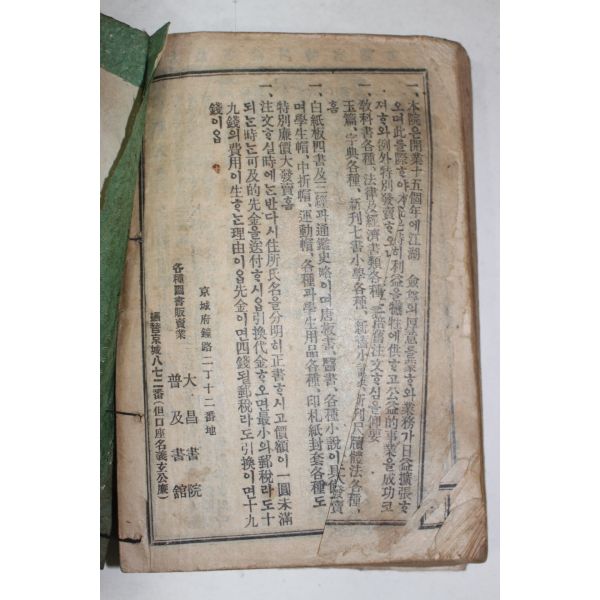 一、本院은開業十五個年에江湖 僉尊의厚意를蒙ᄒᆞ와業務가日益擴張ᄒᆞ
오며此를際ᄒᆞ야 利益을犧牲에供ᄒᆞ고公益的事業을成功코
져ᄒᆞ와例外特別發賣ᄒᆞ 注文ᄒᆞ심을仰要
一、敎科書各種、法律及經濟書類各種、 新刊尺牘體法各種、
玉篇、字典各種、新刊七書小學各種、 大發賣
홈
一、白紙板四書及三經과通鑑史略이며唐板書、醫書、各種小說이具備
며學生帽、中折帽、運動帽、各種과學生用品各種、印札紙封套各種도
特別廉價大發賣홈
一、注文ᄒᆞ실時에ᄂᆞᆫ반다시住所氏名을分明히正書ᄒᆞ시고價額이一圓未滿
되ᄂᆞᆫ時ᄂᆞᆫ可及的先金을送付ᄒᆞ시옵引換代金ᄒᆞ오면最小의郵稅라도十
九錢의費用이生ᄒᆞᄂᆞᆫ理由이옵先金이면四錢될郵稅라도引換이면十九
錢이옵
京城府鐘路二丁十二番地
大昌書院
各種圖書販賣業
普及書館
振替京城八七二番(但口座名義玄公廉)